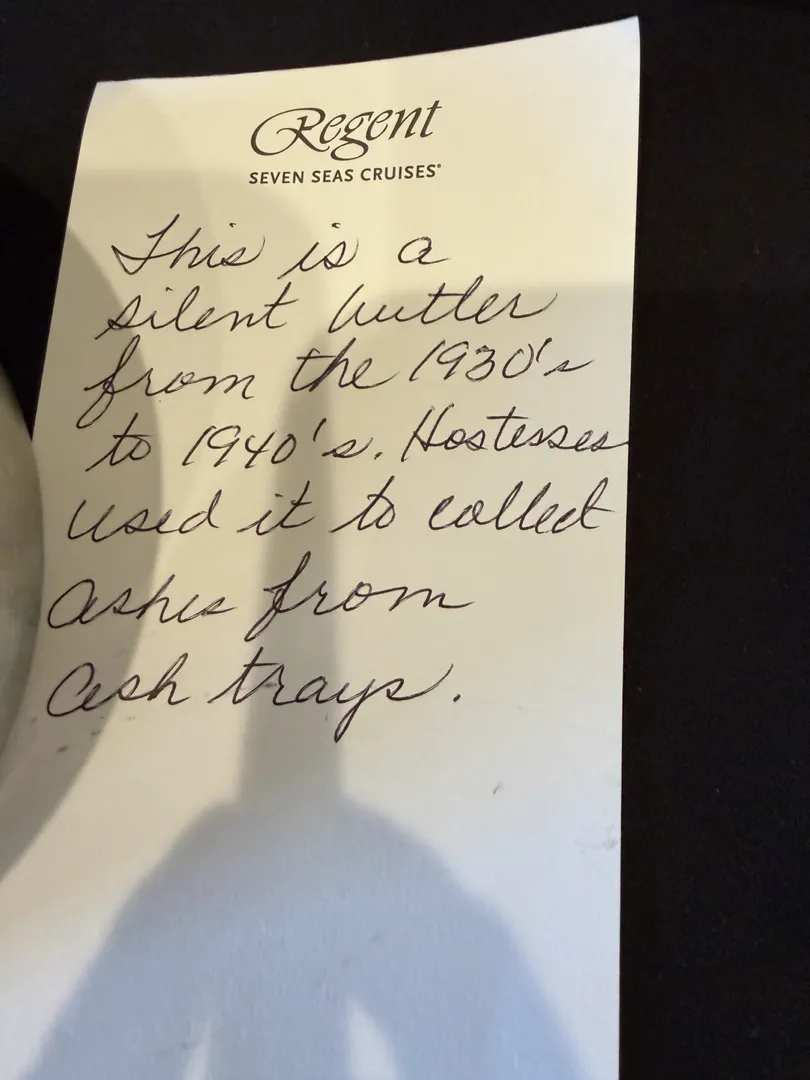 Regent
SEVEN SEAS CRUISES®
This is a
silent butler
from the 1930's
to 1940's. Hostesses
used it to collect
ashes from
ash trays.